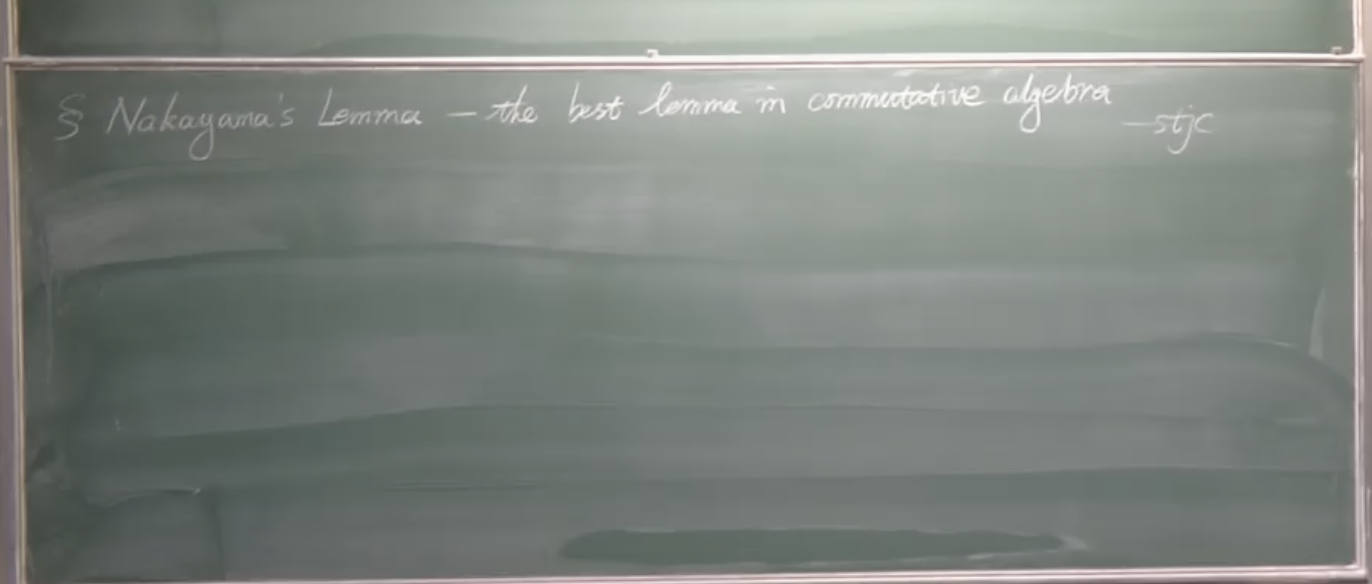 § Nakayama's Lemma — the best lemma in commutative algebra
—stjc